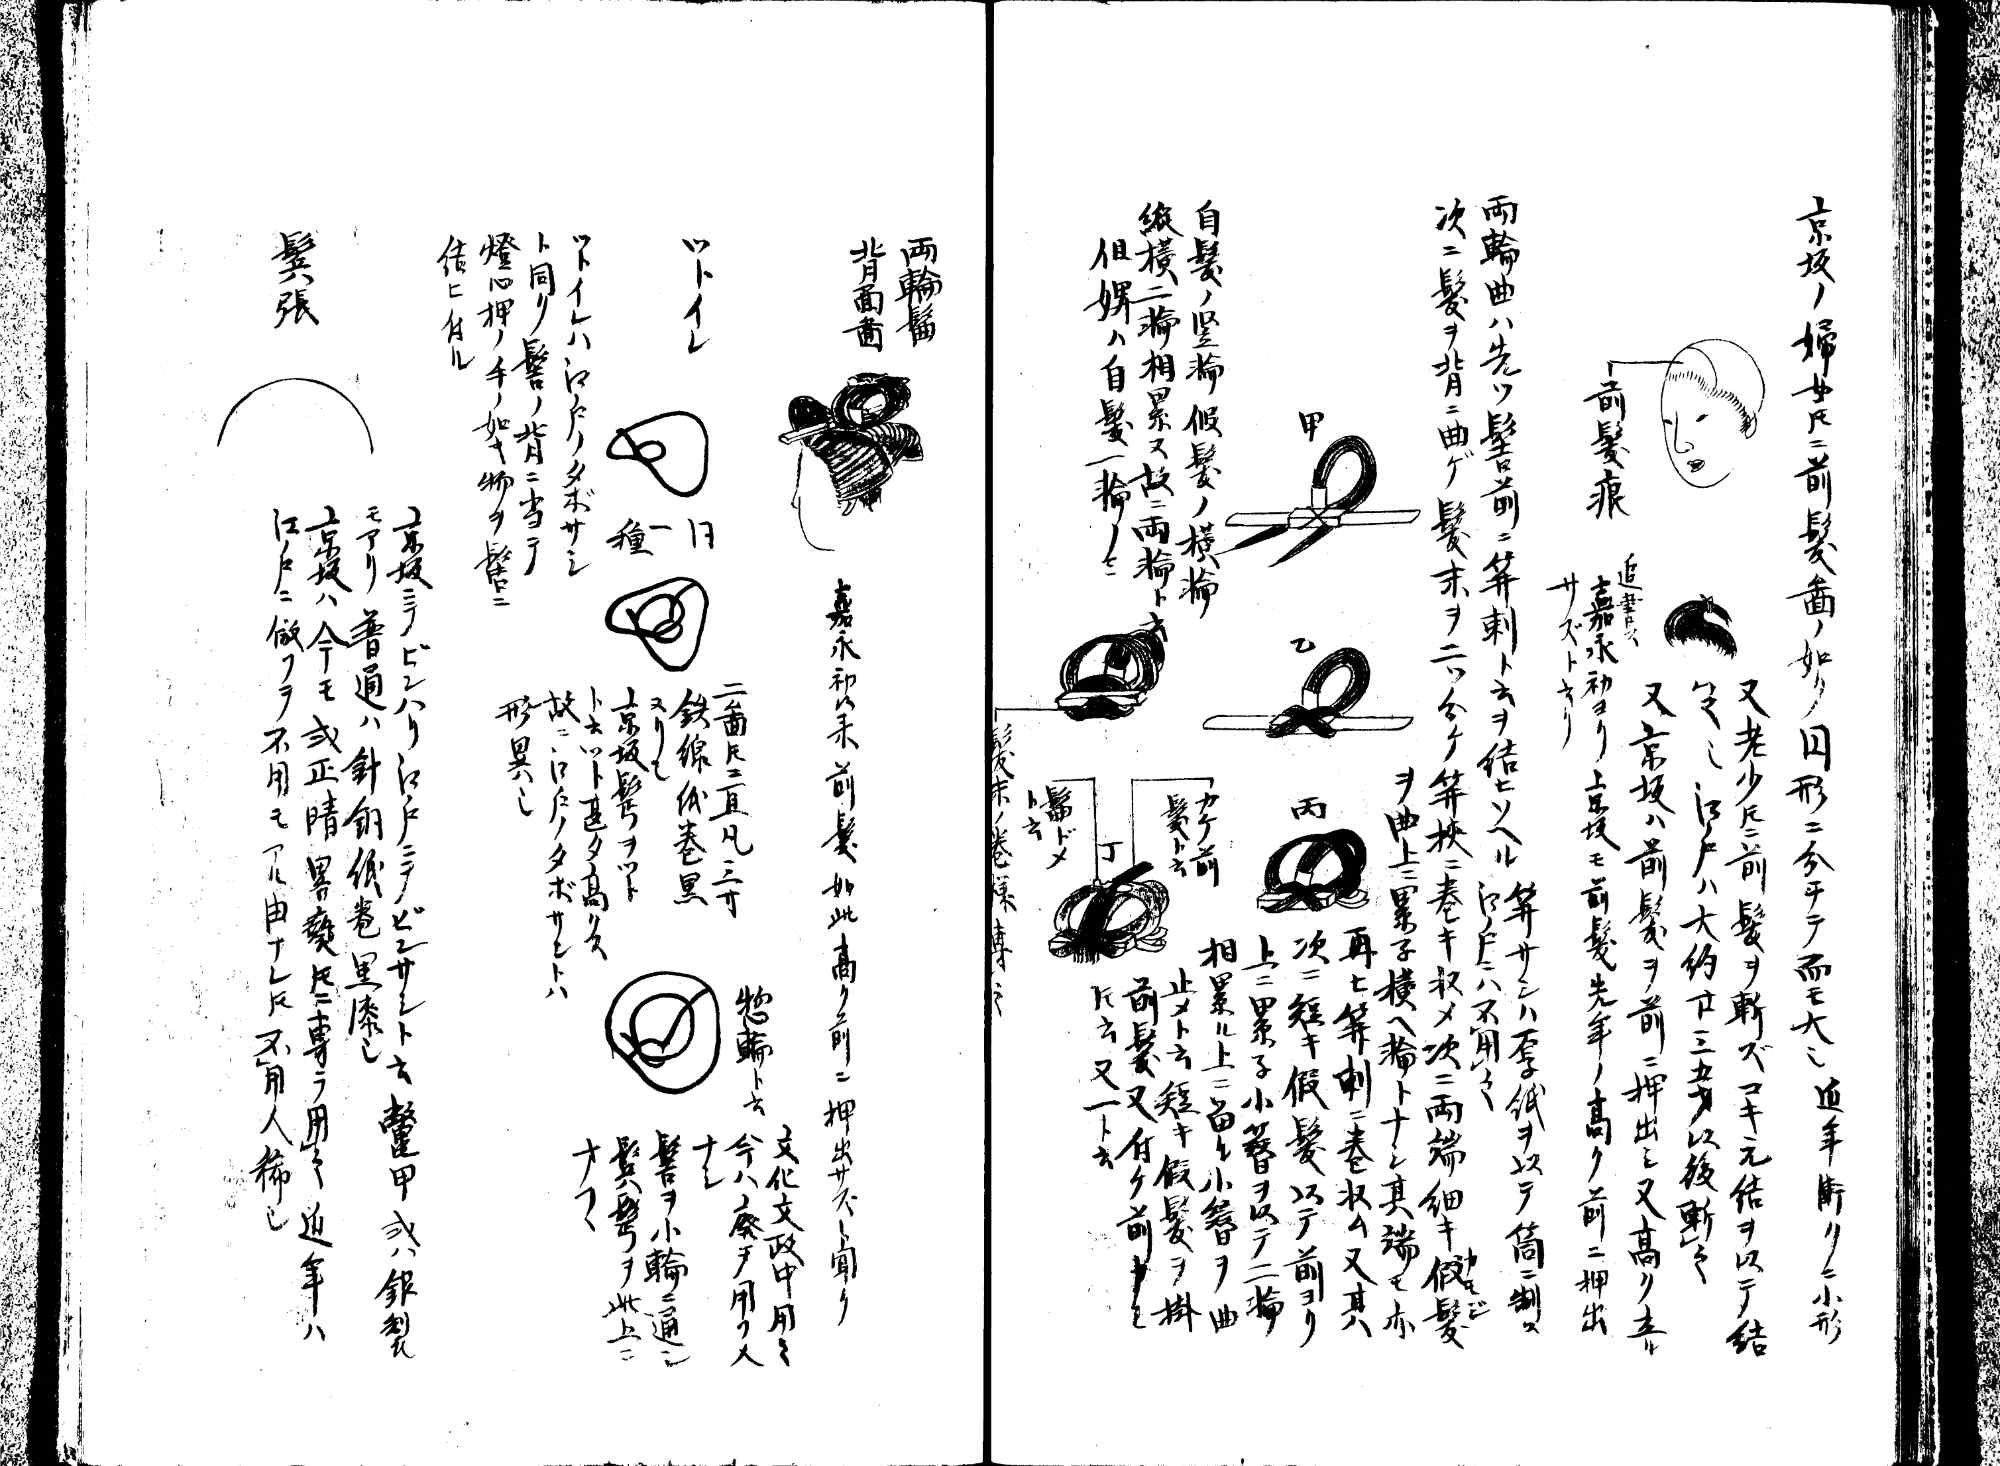 京坂ノ婦女トモニ前髪圖ノ如ク円形ニ分チテ而モ大也 近年漸クニ小形
前髪痕
又老少トモニ前髪ヲ斬ズコキ元結ヲ以テ結
之也 江戸ハ大約廿三五才以後斬之
又京坂ハ前髪ヲ前ニ押出シ又高ク立ル
追書ス
嘉永初ヨリ上京坂モ前髪先年ノ高ク前ニ押出
サズト云リ
両輪曲ハ先ツ髻前ニ笄刺ト云ヲ結ヒソヘル
笄サシハ厚紙ヲ以テ筒ニ制ス
江戸ニハ不用之
次ニ髪ヲ背ニ曲ゲ髪末ヲ二ツ分ケ笄挾ニ巻キ収メ次ニ両端細キ假髪
カモジ
ヲ曲上ニ累子横ヘ輪トナシ其端モ亦
再ヒ笄刺ニ巻収ム又其
次ニ短キ假髪以テ前ヨリ
上ニ累子小簪ヲ以テ二輪
相累ル上ニ留ム小簪ヲ曲
止メト云短キ假髪ヲ掛
前髪又付ケ前髪
トモ云又一ト云
甲
乙
丙
丁
カケ前
髪ト云
髷ドメ
ト云
自髪ノ竪輪假髪ノ横輪
縦横二輪相累又故ニ両輪ト云
但婢ハ自髪一輪ノミ
髪末ノ巻様
両輪髷
背面圖
嘉永初以来前髪如此高ク前ニ押出サズト聞ク
ツトイレ
同一種
ツトイレハ江戸ノタボサシ
ト同ク髻ノ背ニ当テ
燈心押ノ手ノ如キ物ヲ髻ニ
結ヒ付ル
二圖トモニ亘凡三寸
鉄線紙巻黒
ヌリ也
京坂髱ヲツト
ト云ツト甚タ高クス
故ニ江戸ノタボサシトハ
形異也
惣輪ト云
文化文政中用之
今ハ廃テ用フ人
ナシ
髻ヲ小輪ニ通シ
鬢髱ヲ此上ニ
ナフク
鬢張
京坂ニテビンハリ江戸ニテビンサシト云鼈甲或ハ銀製
モアリ普通ハ針銅紙巻黒漆也
京坂ハ今モ或正晴畧褻トモニ専ラ用之近年ハ
江戸ニ倣フヲ不用モアル由ナレトモ不用人稀也